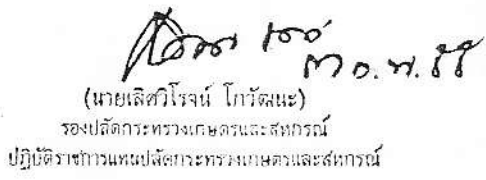 (นายเลิศวิโรจน์ โกวัฒนะ)
รองปลัดกระทรวงเกษตรและสหกรณ์
ปฏิบัติราชการแทนปลัดกระทรวงเกษตรและสหกรณ์